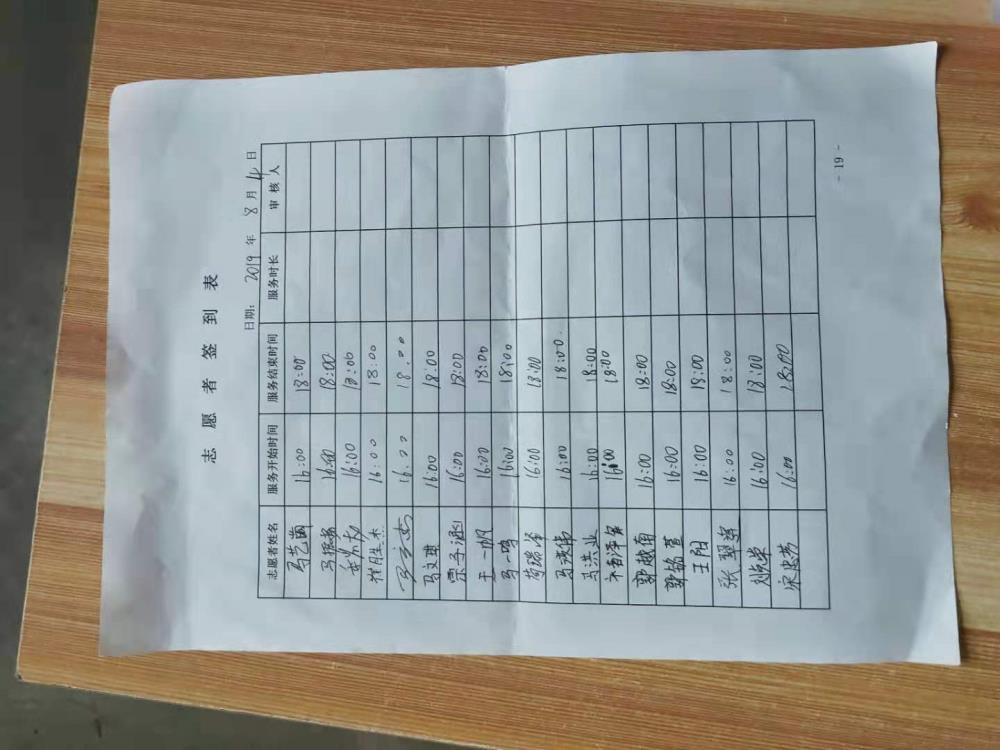 志愿者签到表
日期: 2019 年 8 月 4 日
志愿者姓名 服务开始时间 服务结束时间 服务时长 审核人
马艺菌 16:00 18:00
马 16:00 18:00
16:00 18:00
崔胜杰 16:00 18:00
16:00 18:00
马文 16:00 18:00
宗子涵 16:00 18:00
王一帆 16:00 18:00
马一鸣 16:00 18:00
瑞 16:00 18:00
马 16:00 18:00.
马洪业 16:00 18:00
泽 16:00 18:00
郭越 16:00 18:00
郭 16:00 18:00
王阳 16:00 18:00
张翠 16:00 18:00
刘光荣 16:00 18:00
宋忠芳 16:00 18:00
- 19 -